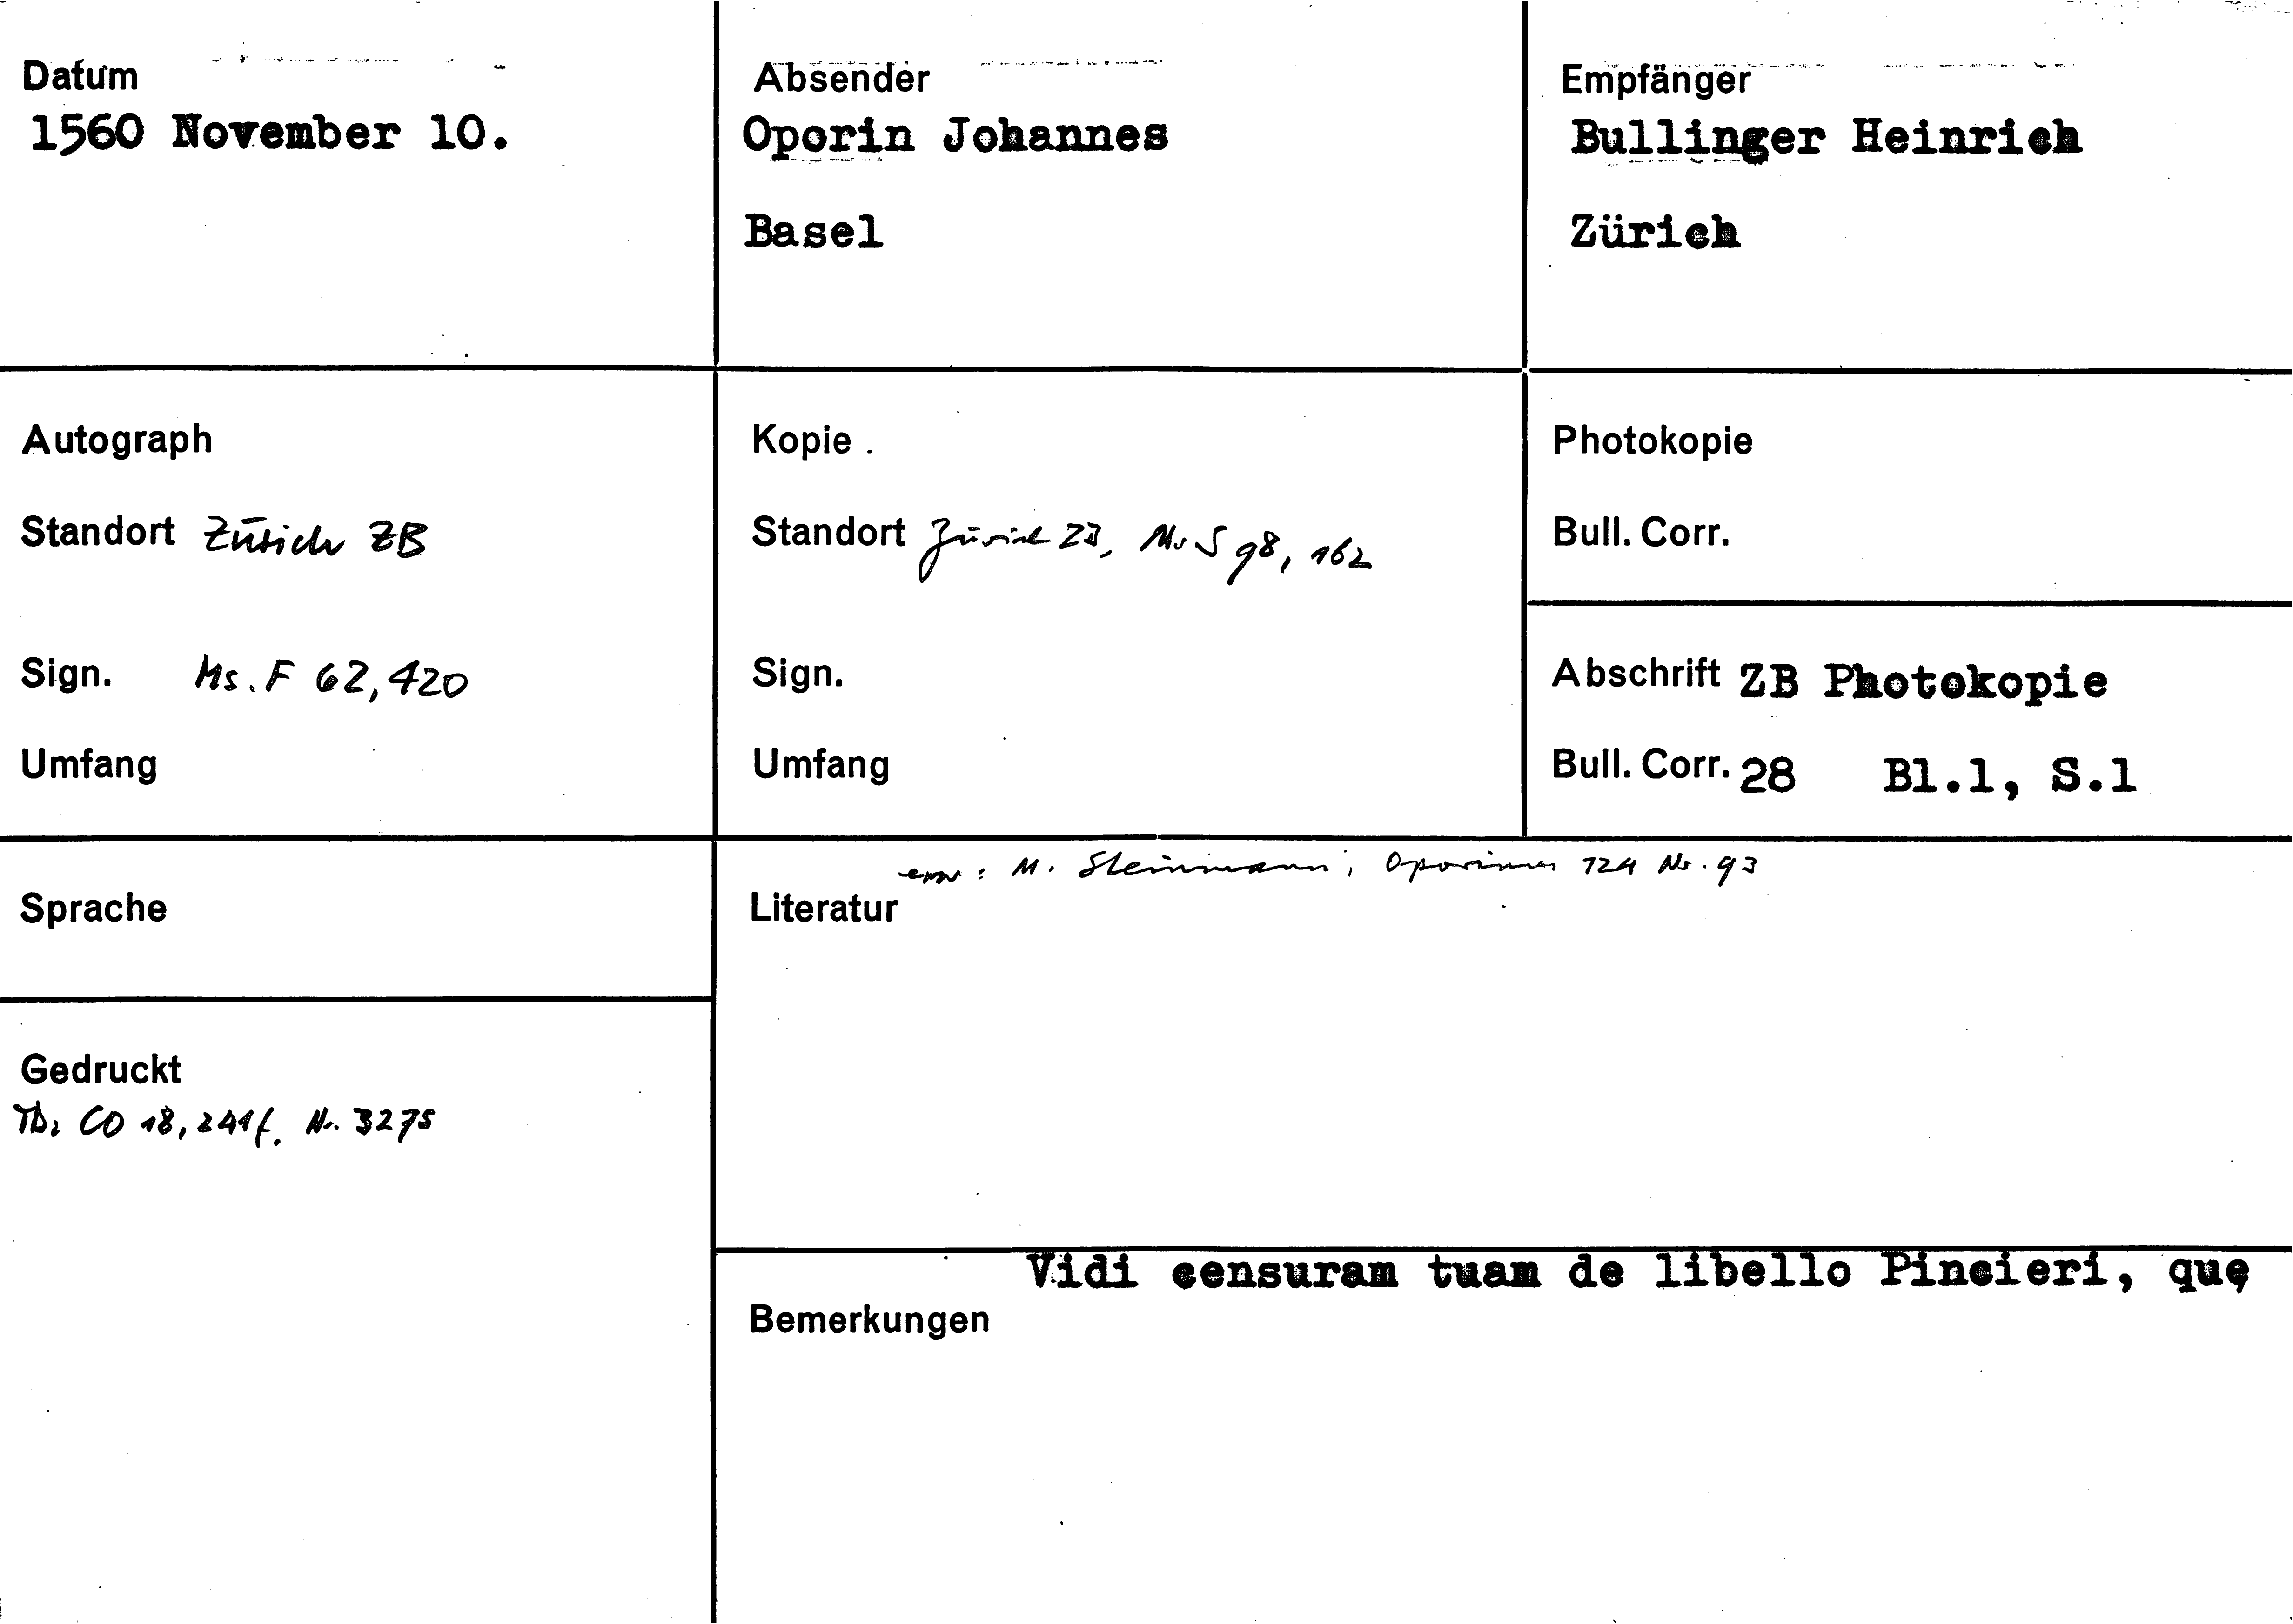 Datum
1560 November 10.
Absender
Oporin Johannes
Basel
Empfänger
Bullinger Heinrich
Zürich
Autograph
Standort Zürich ZB
Sign. Ms. F 62, 420
Umfang
Kopie
Standort Zürich ZB, Ms S 98, 162
Sign.
Umfang
Photokopie
Bull. Corr.
Abschrift ZB Photokopie
Bull. Corr. 28 Bl.1, S.1
Sprache
Gedruckt
CO 18, 241f. Nr. 3275
erw: M. Steinmann, Oporinus 124 Nr. 93
Literatur
Vidi censuram tuam de libello Pincieri, quę
Bemerkungen